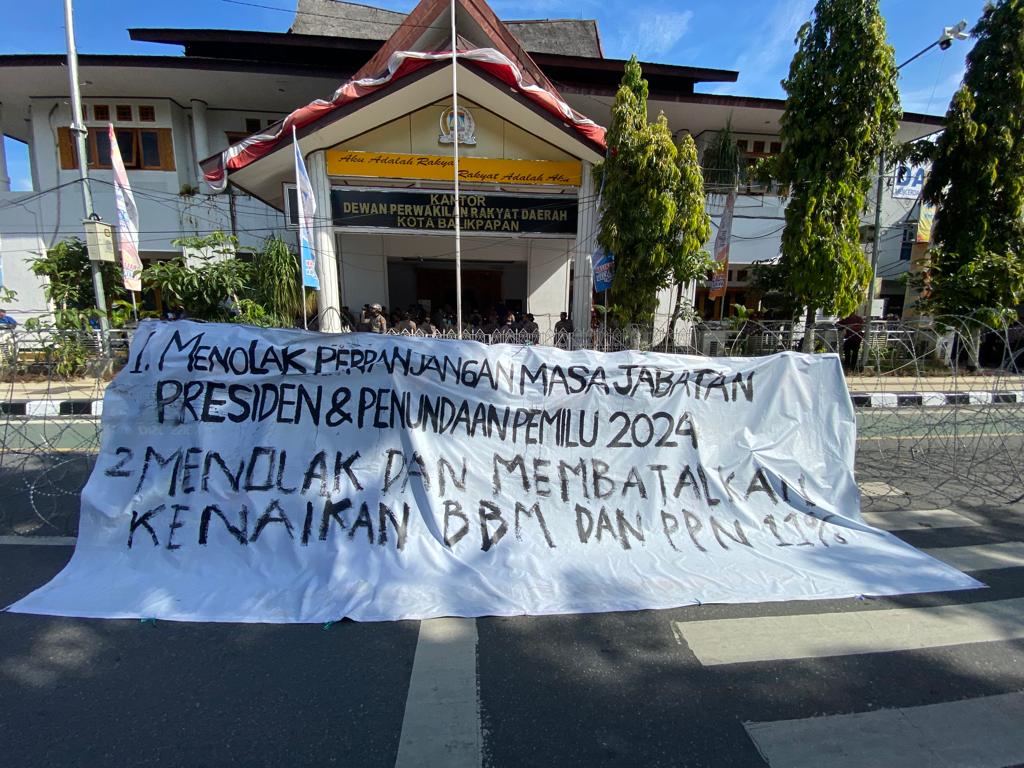 Aku Adalah Rakyat
Rakyat Adalah Aku
KANTOR
DEWAN PERWAKILAN RAKYAT DAERAH
KOTA BALIKPAPAN
1. MENOLAK PERPANJANGAN MASA JABATAN
PRESIDEN & PENUNDAAN PEMILU 2024
2 MENOLAK DAN MEMBATALKAN
KENAIKAN BBM DAN PPN 11%